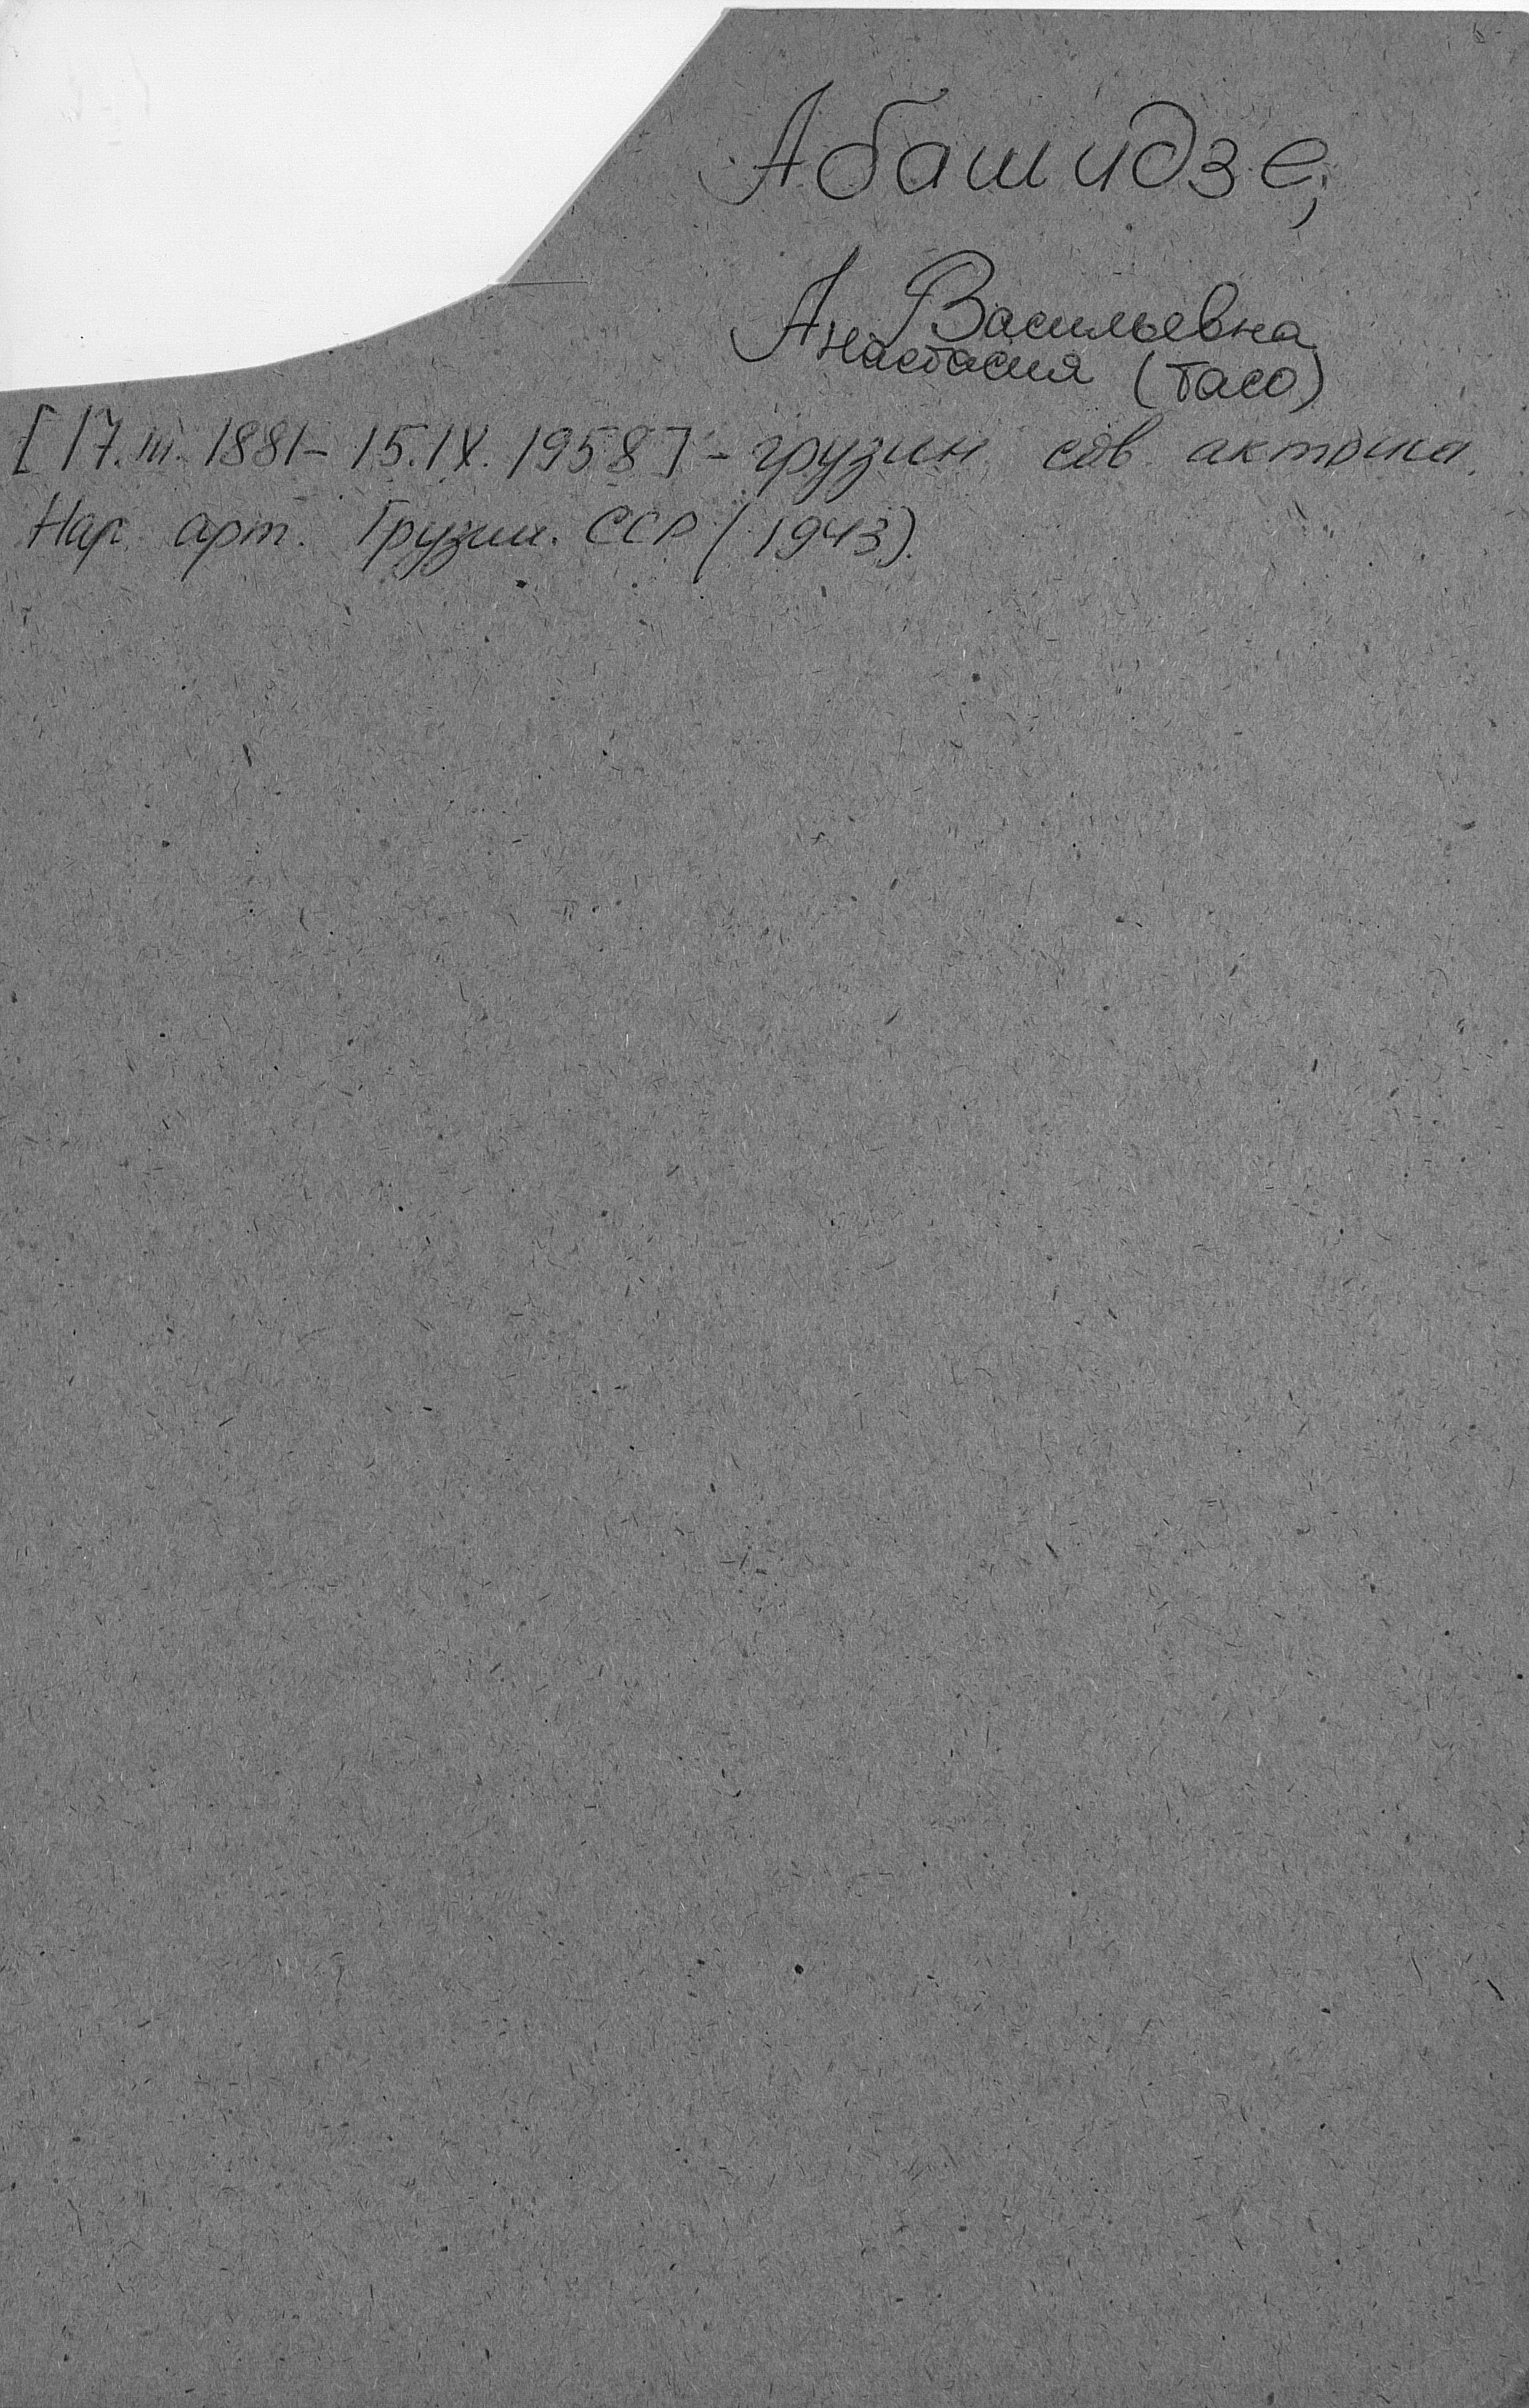 Абашидзе,
Васильевна
Анастасия (Тасо)
[17.III.1881–15.IX.1958] – грузин. сов. актриса.
Нар. арт. Грузин. ССР (1943).